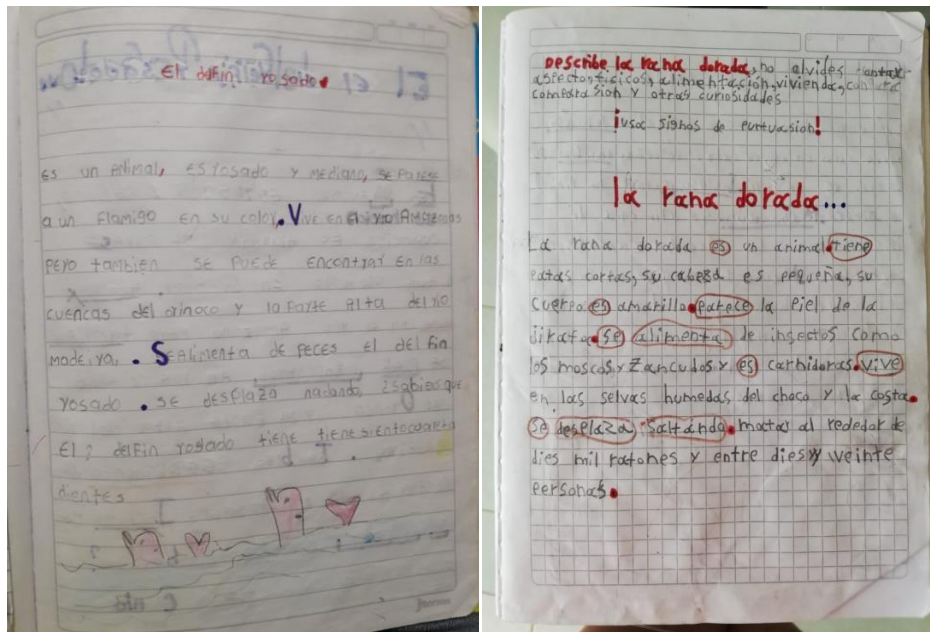 El delfin rosado.
Es un animal, es rosado y mediano, se parese
a un flamigo en su color. Vive en el rio Amazonas
pero tambien se puede encontrar en las
cuencas del orinoco y la parte alta del rio
madeira. . SeAlimenta de peces El delfin
rosado . se desplaza nadando, ¿sabias que
El? delfin rosado tiene tiene sientocuarenta
dientes
Describe la rana dorada, no olvides contar
aspectos fisicos, alimentasión, vivienda,
comparasion y otras curiosidades
¡usa signos de puntuasion!
la rana dorada...
La rana dorada es un animal. tiene
patas cortas, su cabesa es pequeña, su
cuerpo es amarillo. parece la piel de la
jirafa. se alimenta de insectos como
los moscos y zancudos y es carnidoras. vive
en las selvas humedas del choco y la costa.
se desplaza saltando. matar al rededor de
dies mil ratones y entre dies y veinte
personas.